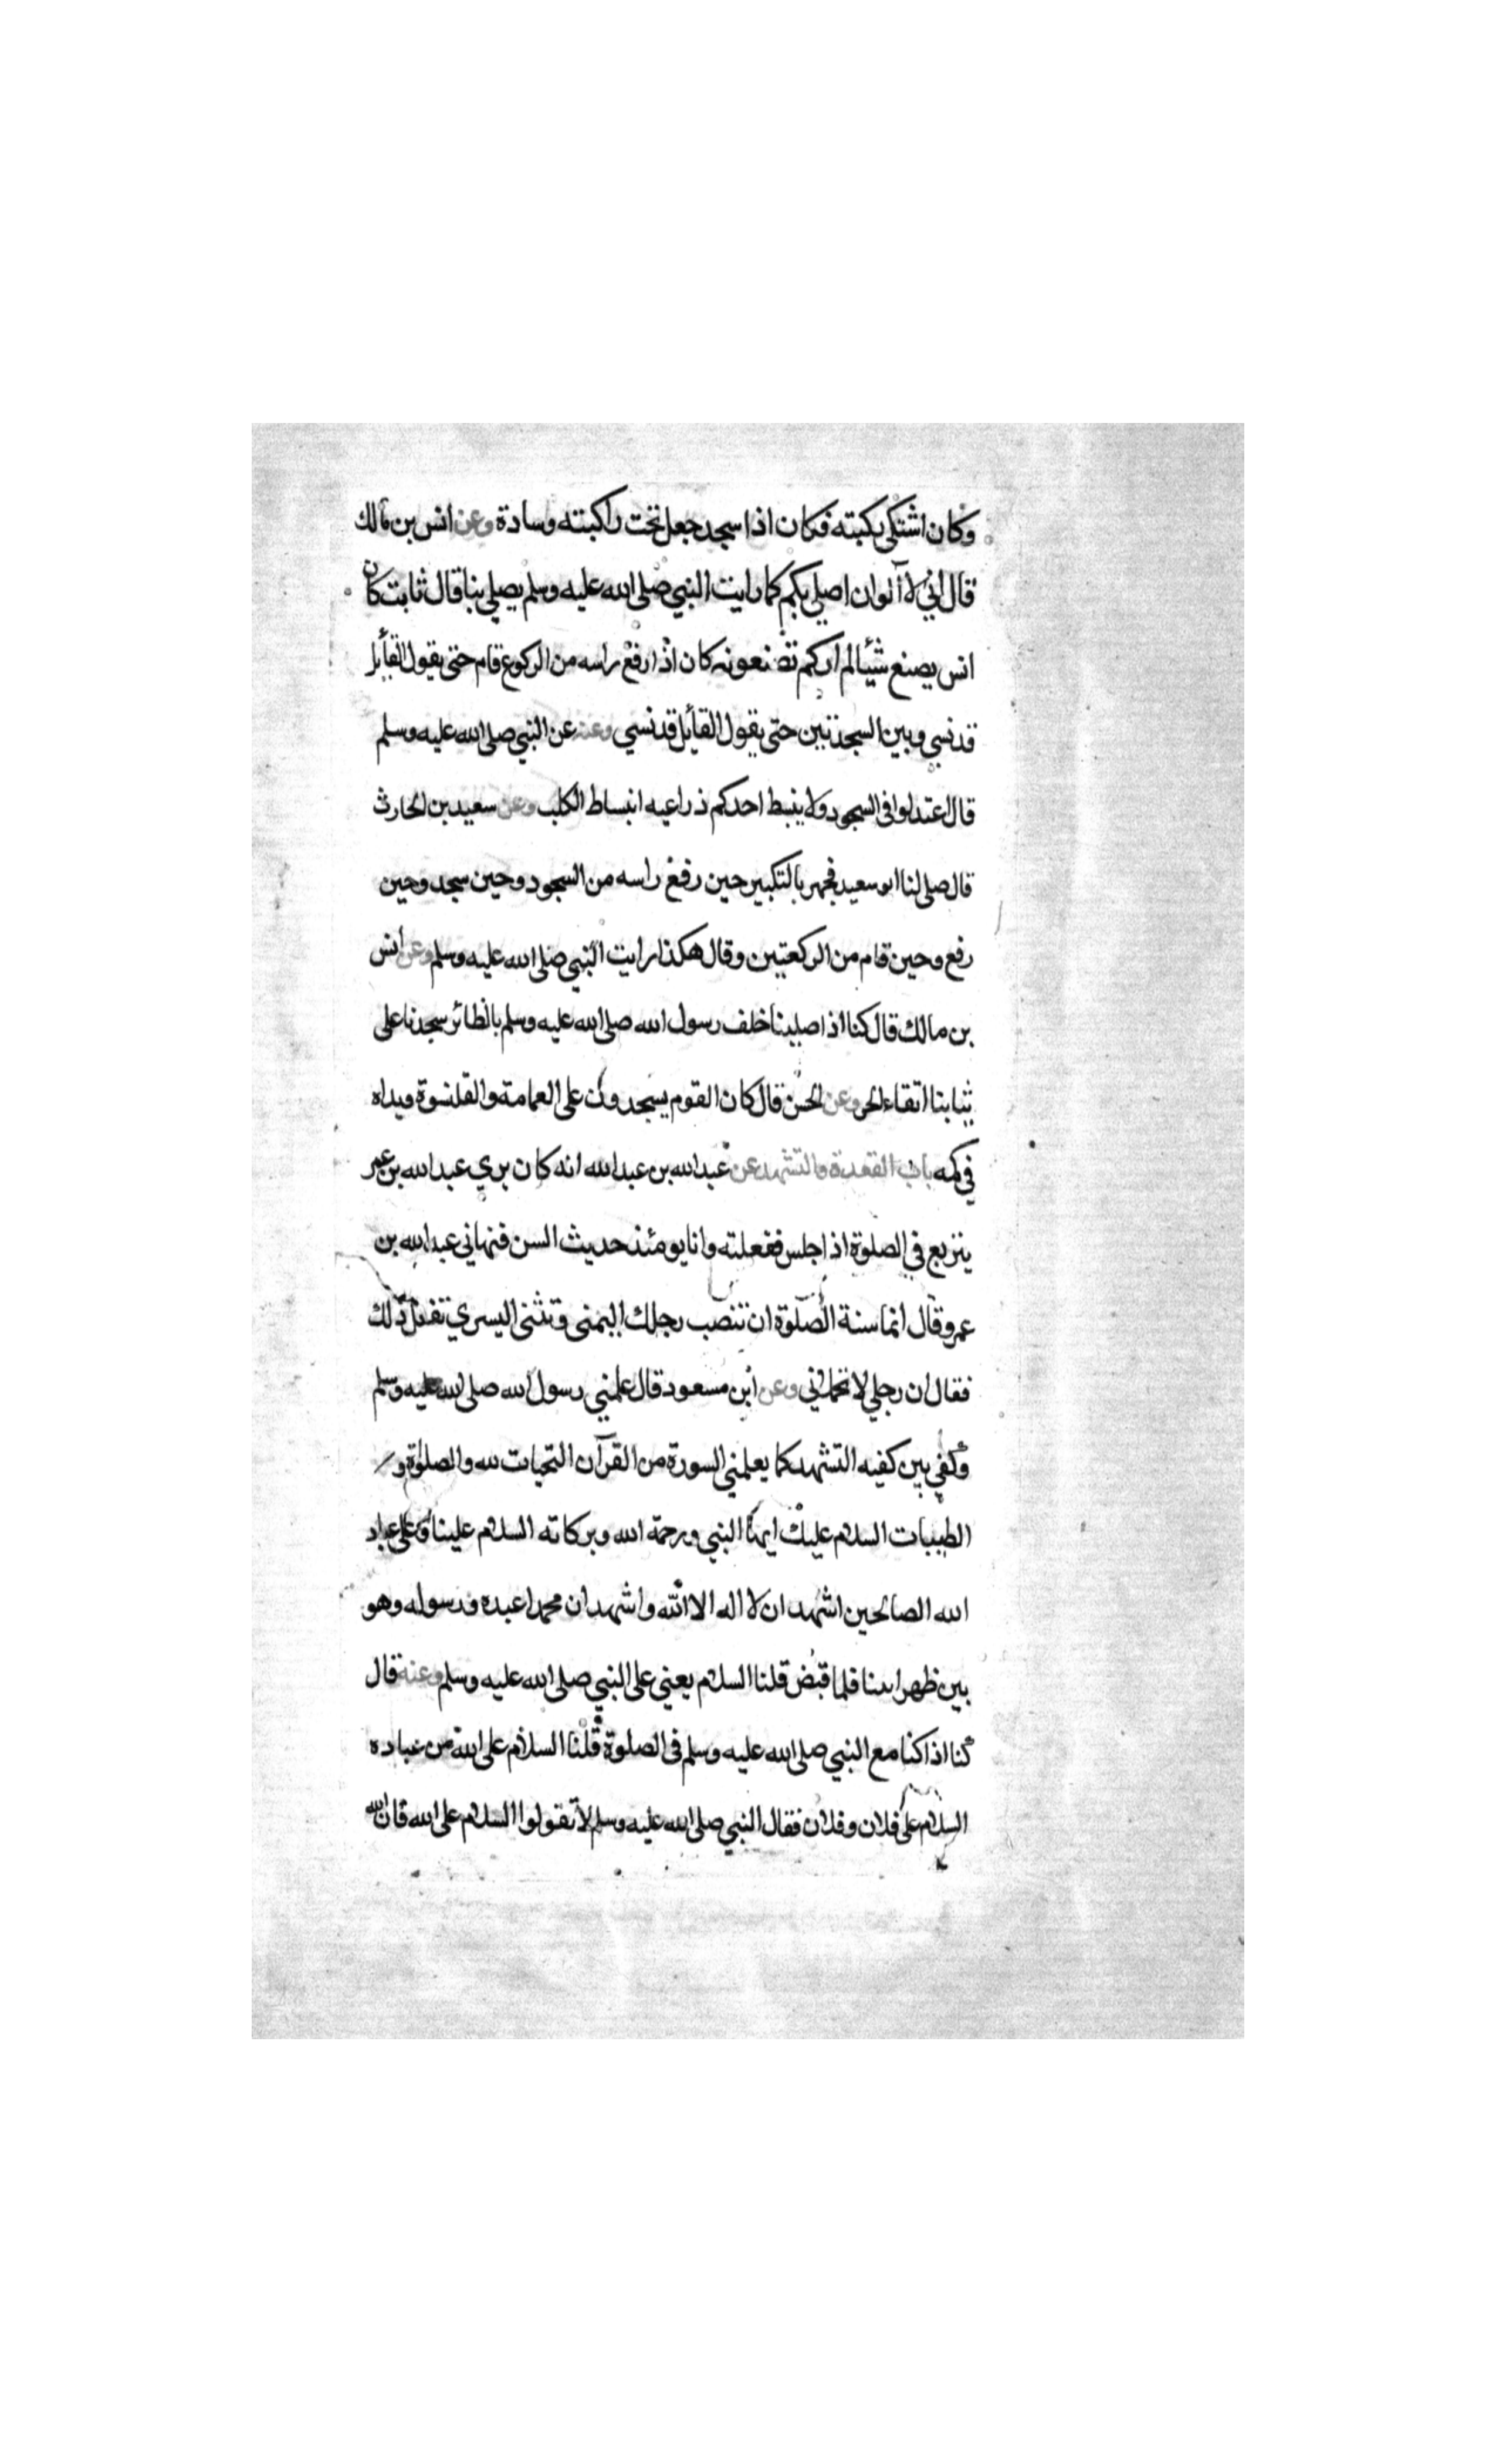 وكان اشتكى ركبته فكان اذا سجد جعل تحت راكبته وسادة وعن انس بن مالك
قال اني لا آلوان اصلي بكم كما رايت النبي صلى الله عليه وسلم يصلي بنا قال ثابت كان
انس يصنع شيئا لم اركم تصنعونه كان اذا رفع راسه من الركوع قام حتى يقول القائل
قد نسي وبين السجدتين حتى يقول القائل قد نسي وعنه عن النبي صلى الله عليه وسلم
قال اعتدلوا في السجود ولا ينبسط احدكم ذراعيه انبساط الكلب وعن سعيد بن الحارث
قال صلى لنا ابو سعيد فجهر بالتكبير حين رفع راسه من السجود وحين سجد وحين
رفع وحين قام من الركعتين وقال هكذا رايت النبي صلى الله عليه وسلم وعن أنس
بن مالك قال كنا اذا صلينا خلف رسول الله صلى الله عليه وسلم بالظائر سجدنا على
ثيابنا اتقاء الحر وعن الحسن قال كان القوم يسجدون على العمامة والقلنسوة ويداه
في كمه باب القعدة والتشهد عن عبد الله بن عبد الله انه كان يري عبد الله بن عمر
يتربع في الصلوة اذا جلس ففعلته وانا يومئذ حديث السن فنهاني عبد الله بن
عمر وقال انما سنة الصلوة ان تنصب رجلك اليمنى وتثنى اليسري تفعل ذلك
فقال ان رجلي لا تحملاني وعن ابن مسعود قال علمني رسول الله صلى الله عليه وسلم
وكفي بين كفيه التشهد كما يعلمني السورة من القرآن التحيات لله والصلوة و
الطيبات السلام عليك ايها النبي ورحمة الله وبركاته السلام علينا وعلى عباد
الله الصالحين اشهد ان لا اله الا الله واشهد ان محمدا عبده ورسوله وهو
بين ظهراننا فلما قبض قلنا السلام يعني على النبي صلى الله عليه وسلم وعنه قال
كنا اذا كنا مع النبي صلى الله عليه وسلم في الصلوة قلنا السلام على الله من عباده
السلام على فلان وفلان فقال النبي صلى الله عليه وسلم لا تقولوا السلام على الله فان الله